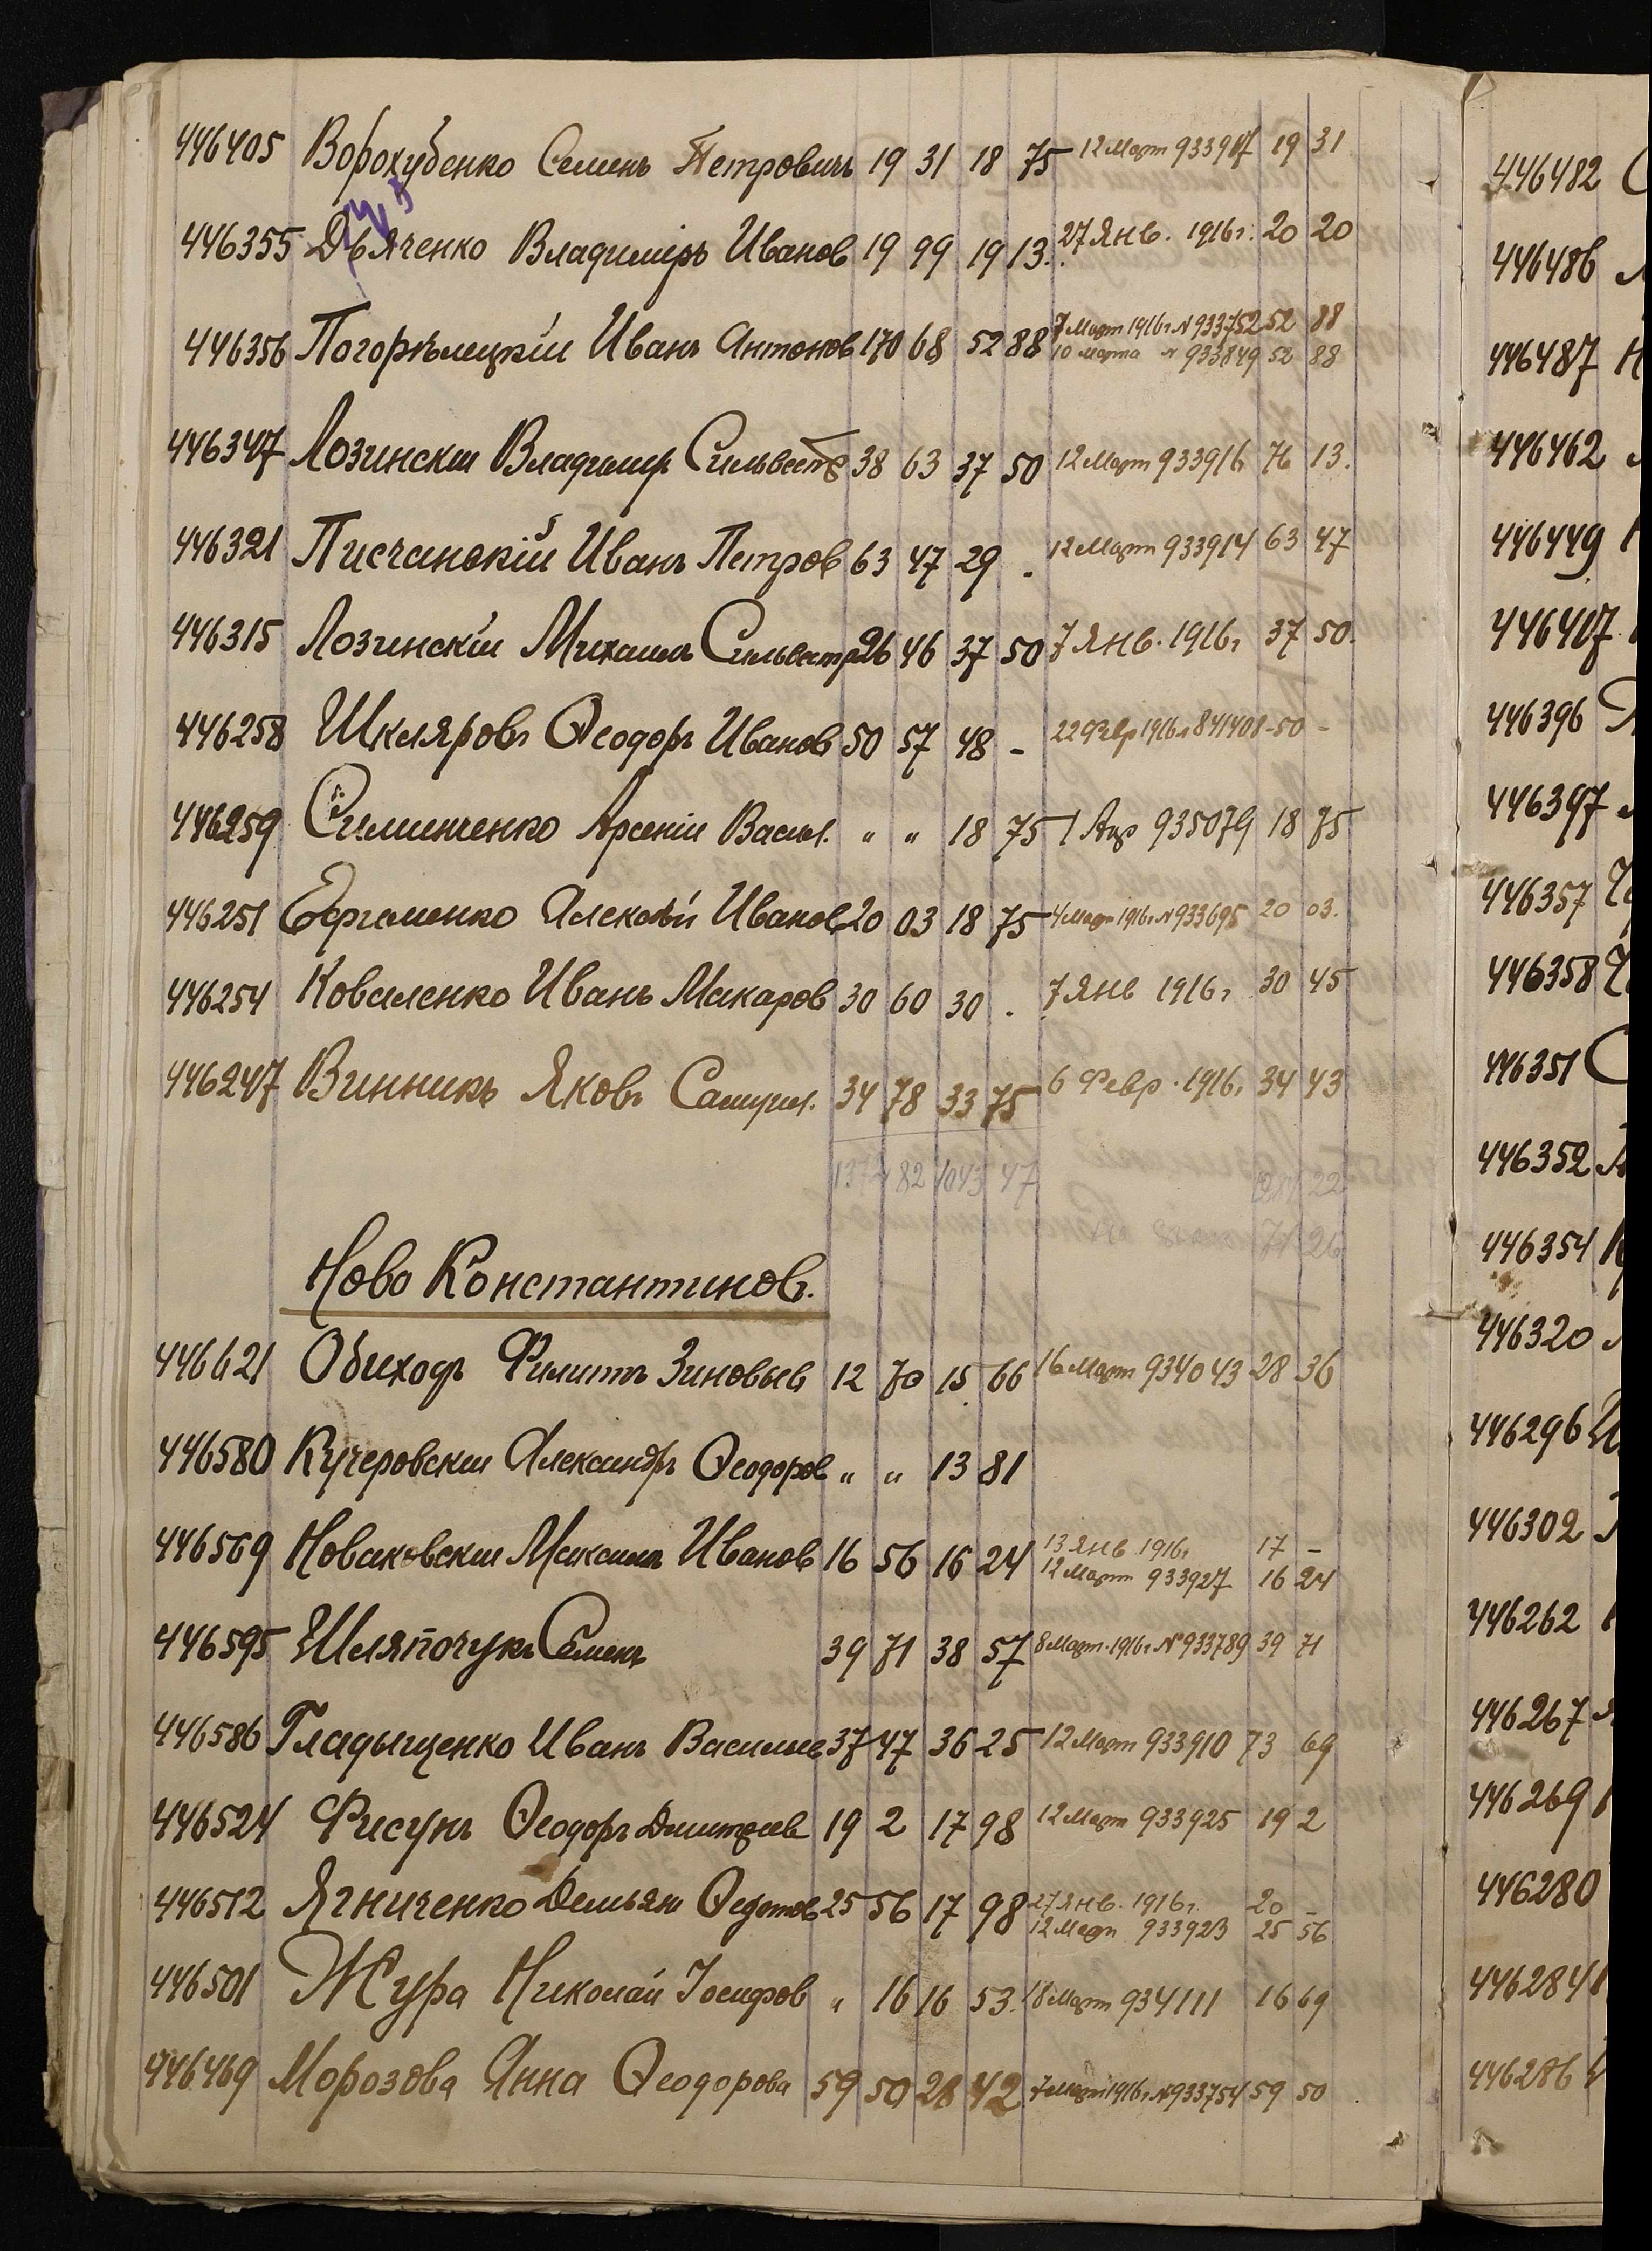 446405 Ворохубенко Семенъ Петровичъ 19 31 18 75 12 Март 933917 19 31
446355 Дьяченко Владиміръ Иванов 19 99 19 13. 27 Янв. 1916г. 20 20
446356 Погорѣлецкій Иванъ Антонов 170 68 52 88 7 Март 1916г N 933752 52 88
10 марта N 933849 52 88
446347 Лозински Владимир Сильвестр 38 63 37 50 12 Март 933916 76 13.
446321 Писчанскій Иванъ Петров 63 47 29 . 12 Март 933914 63 47
446315 Лозинскій Михаилъ Сильвестр 26 46 37 50 7 Янв. 1916г 37 50.
446258 Шкляровъ Ѳеодоръ Иванов 50 57 48 - 22 Февр 1916г 841408 - 50 -
446259 Арсеній Васил. " " 18 75 1 Апр 935079 18 75
446251 Ефременко Алексѣй Иванов 20 03 18 75 4 Март 1916г N 933695 20 03.
446254 Коваленко Иванъ Макаров 30 60 30 . 7 Янв 1916г 30 45
446247 Винникъ Яковъ Самуил. 34 78 33 75 6 Февр. 1916г 34 43
82 1043 47 22
71 26
Ново Константинов.
446621 Обиходъ Филиппъ Зиновьев 12 70 15 66 16 Март 934043 28 36
446580 Кучеровски Александръ Ѳеодоров " " 13 81
446569 Новаковски Максимъ Иванов 16 56 16 24 13 Янв 1916г 17 -
12 Март 933927 16 24
446595 Шляпочукъ Семенъ 39 71 38 57 8 Март. 1916г N 933789 39 71
446586 Гладыщенко Иванъ Васильев 37 47 36 25 12 Март 933910 73 69
446524 Фисунъ Ѳеодоръ Дмитріев 19 2 17 98 12 Март 933925 19 2
446512 Ягниченко Демьян Ѳедотов 25 56 17 98 27 Янв. 1916г. 20 -
12 Март 933923 25 56
446501 Жура Николай Іосифов " 16 16 53. 18 Март 934111 16 69
446469 Морозова Анна Ѳеодорова 59 50 28 42 7 Март 1916г N 933754 59 50
446482
446486
446487
446462
446449
446407
446396
446397
446357
446358
446351
446352
446354
446320
446296
446302
446262
446267
446269
446280
446284
446286